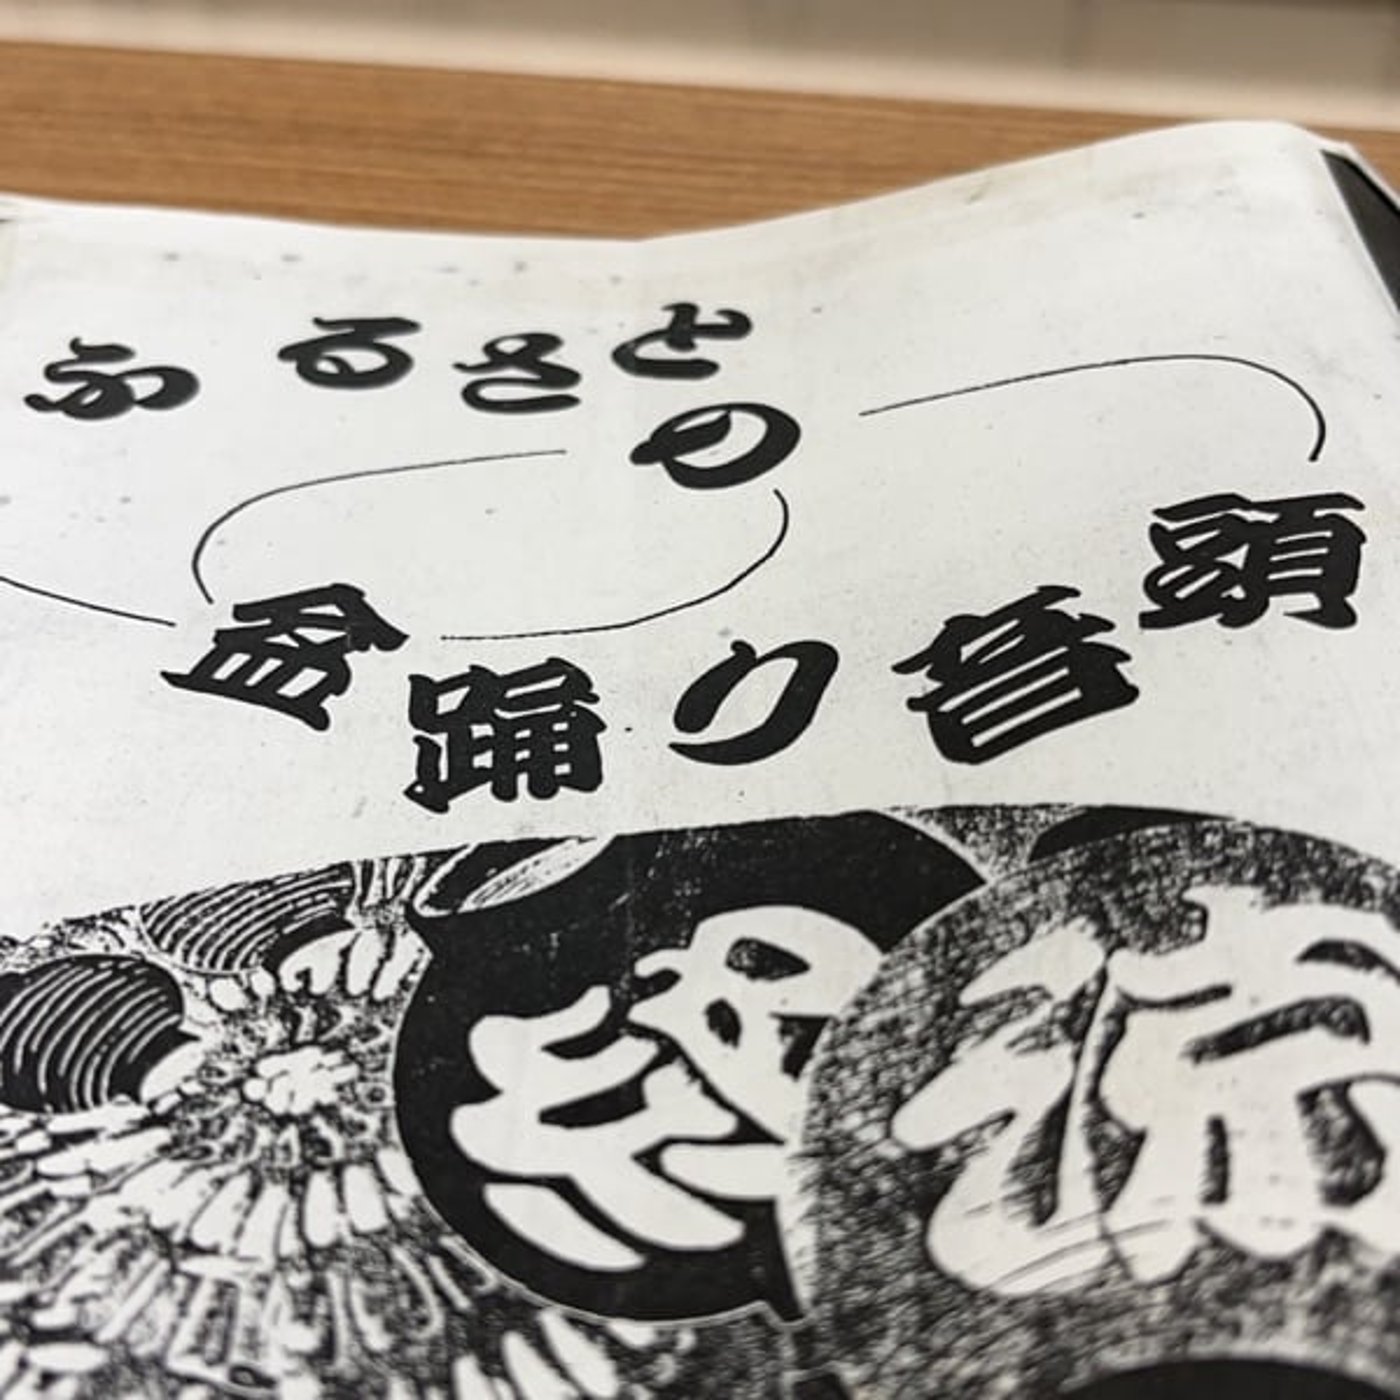 ふるさとの
盆踊り音頭
祭